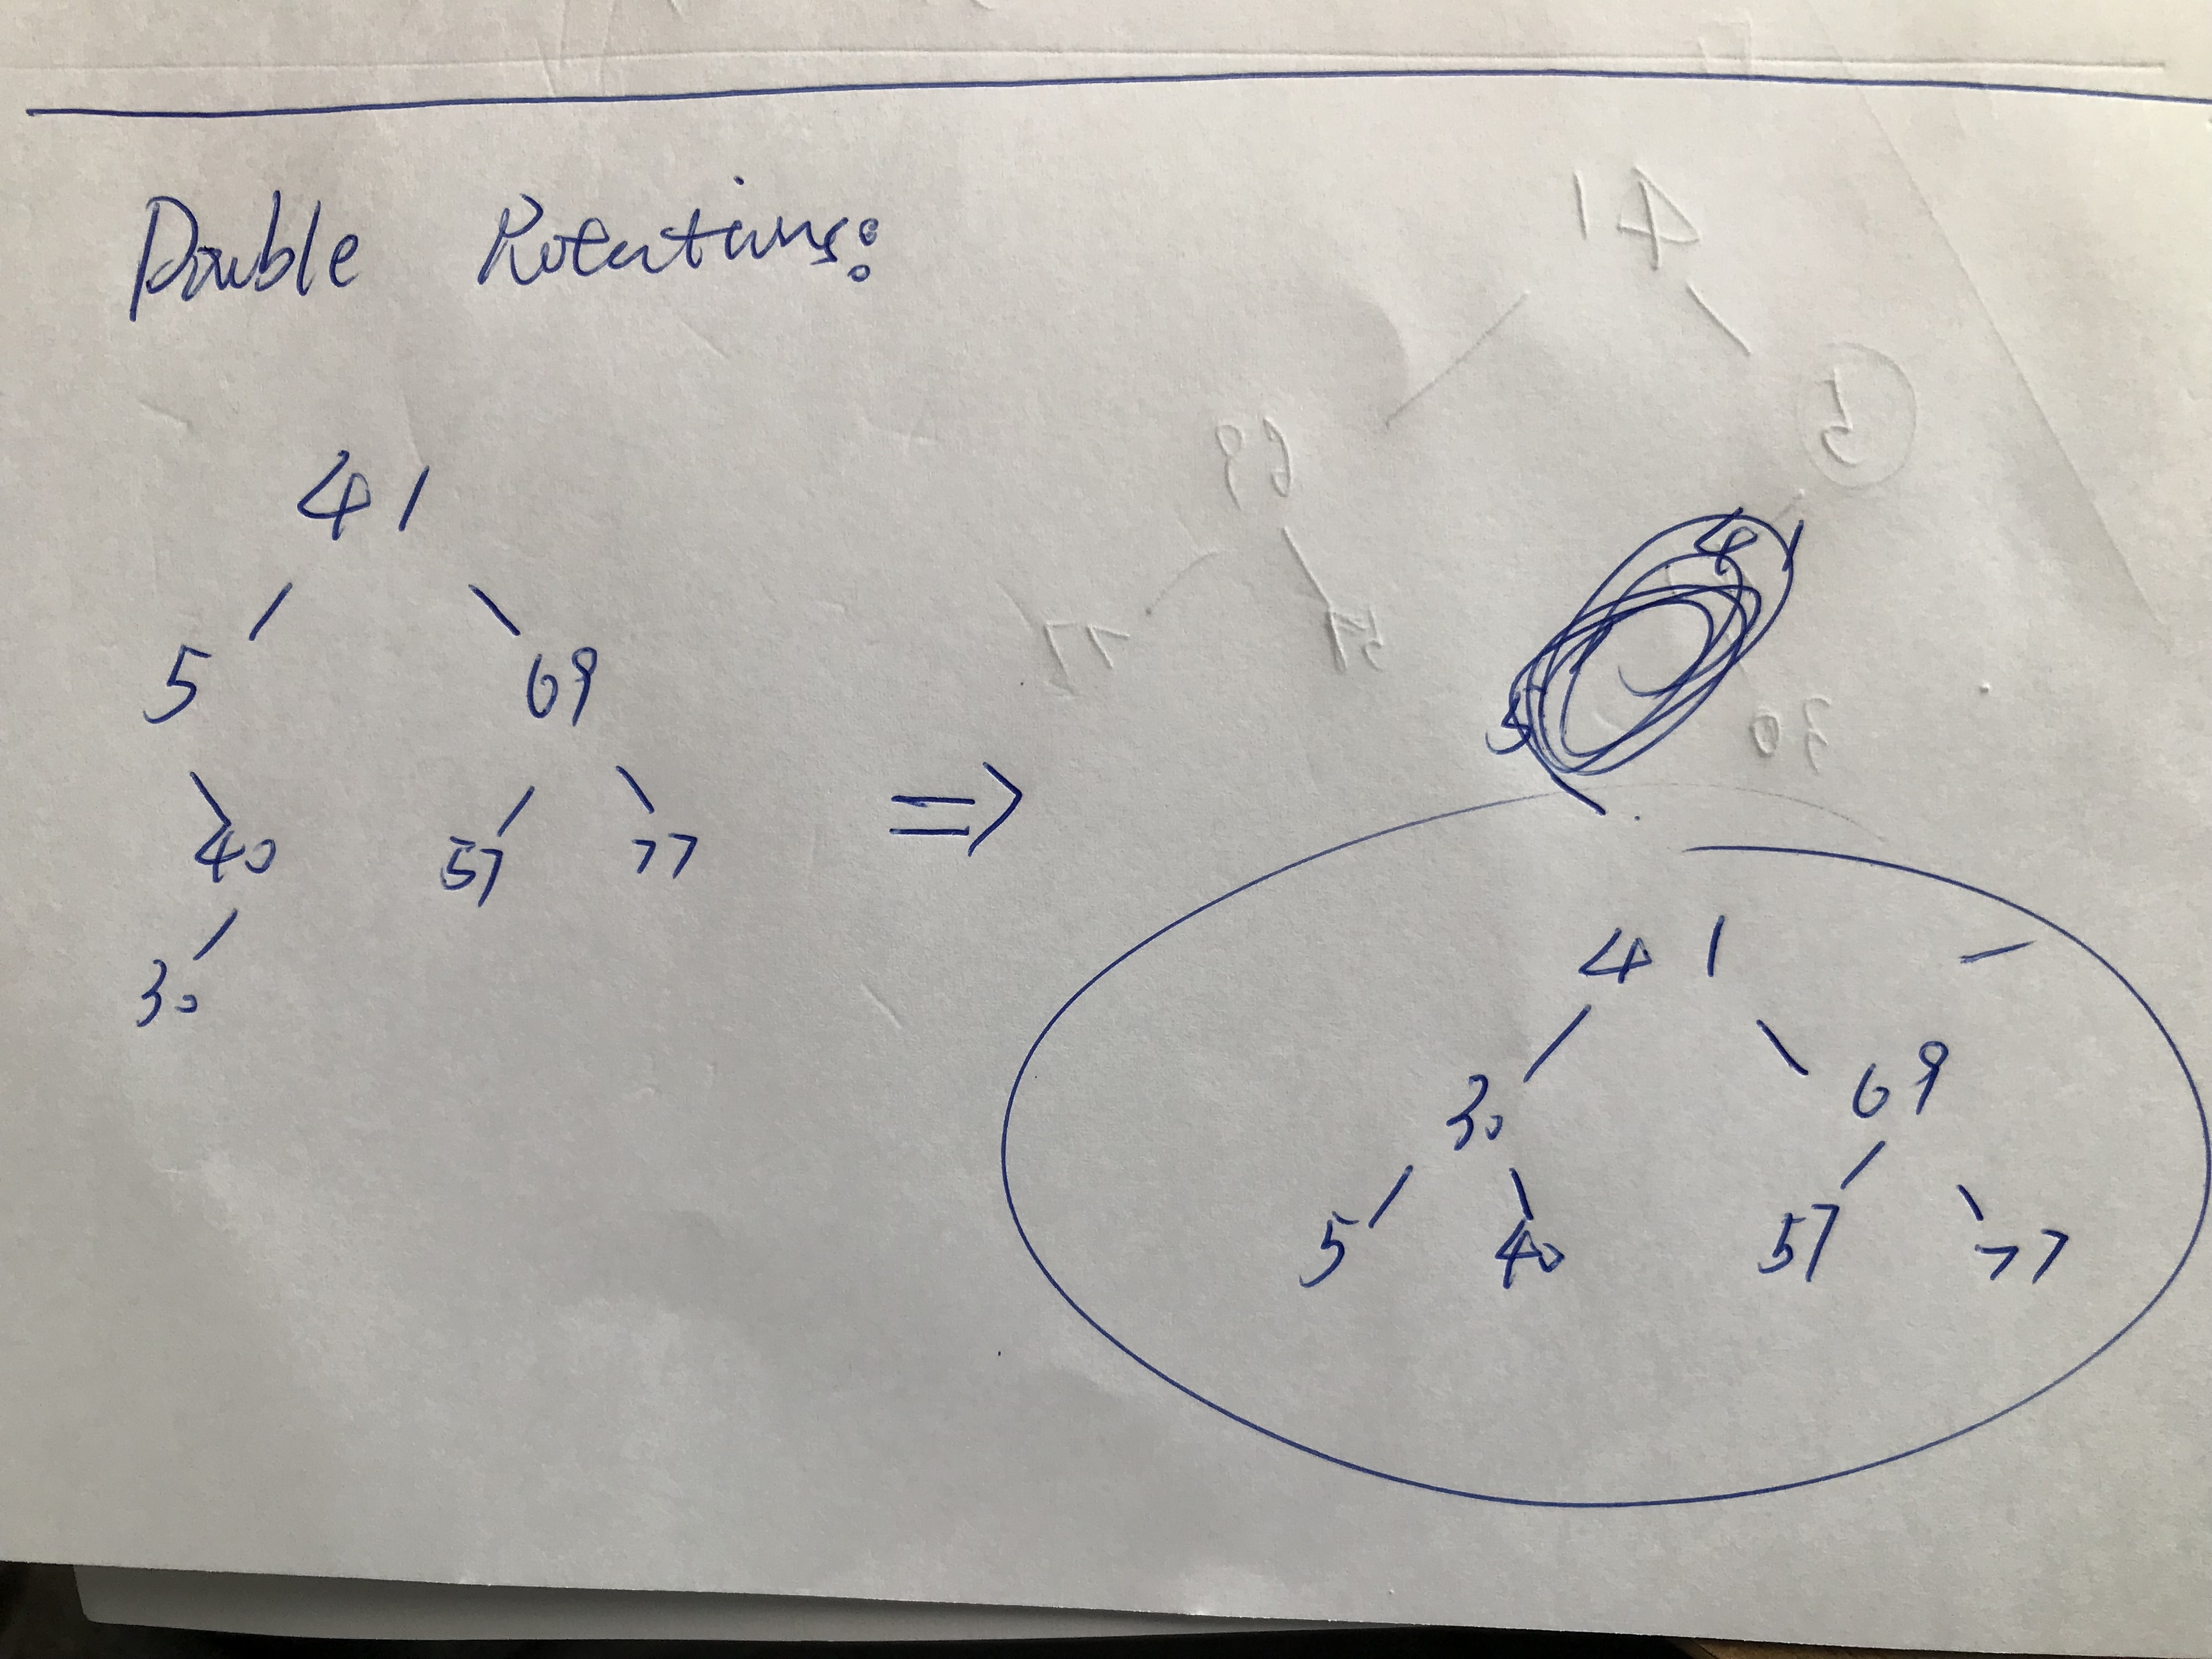 Double Rotations:
41
5 69
40 57 77
30
=>
41
5
41
30 69
5 40 57 77